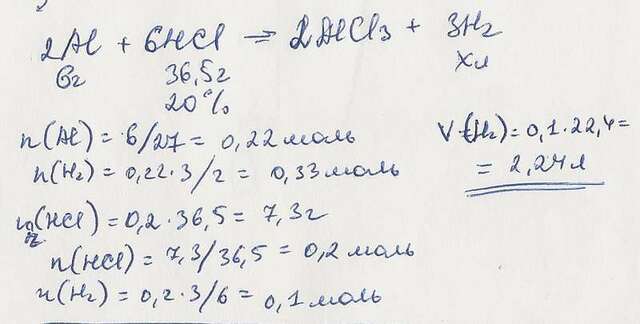 2Al + 6HCl = 2AlCl3 + 3H2
6г 36,5г xл
20%
n(Al) = 6/27 = 0,22 моль
n(H2) = 0,22·3/2 = 0,33 моль
m(HCl) = 0,2·36,5 = 7,3г
n(HCl) = 7,3/36,5 = 0,2 моль
n(H2) = 0,2·3/6 = 0,1 моль
V(H2) = 0,1·22,4 =
= 2,24л